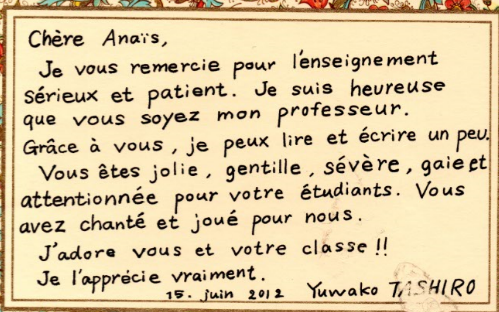 Chère Anaïs,
Je vous remercie pour l'enseignement
sérieux et patient. Je suis heureuse
que vous soyez mon professeur.
Grâce à vous, je peux lire et écrire un peu.
Vous êtes jolie, gentille, sévère, gaie et
attentionnée pour votre étudiants. Vous
avez chanté et joué pour nous.
J'adore vous et votre classe!!
Je l'apprécie vraiment.
15. juin 2012 Yuwako TASHIRO